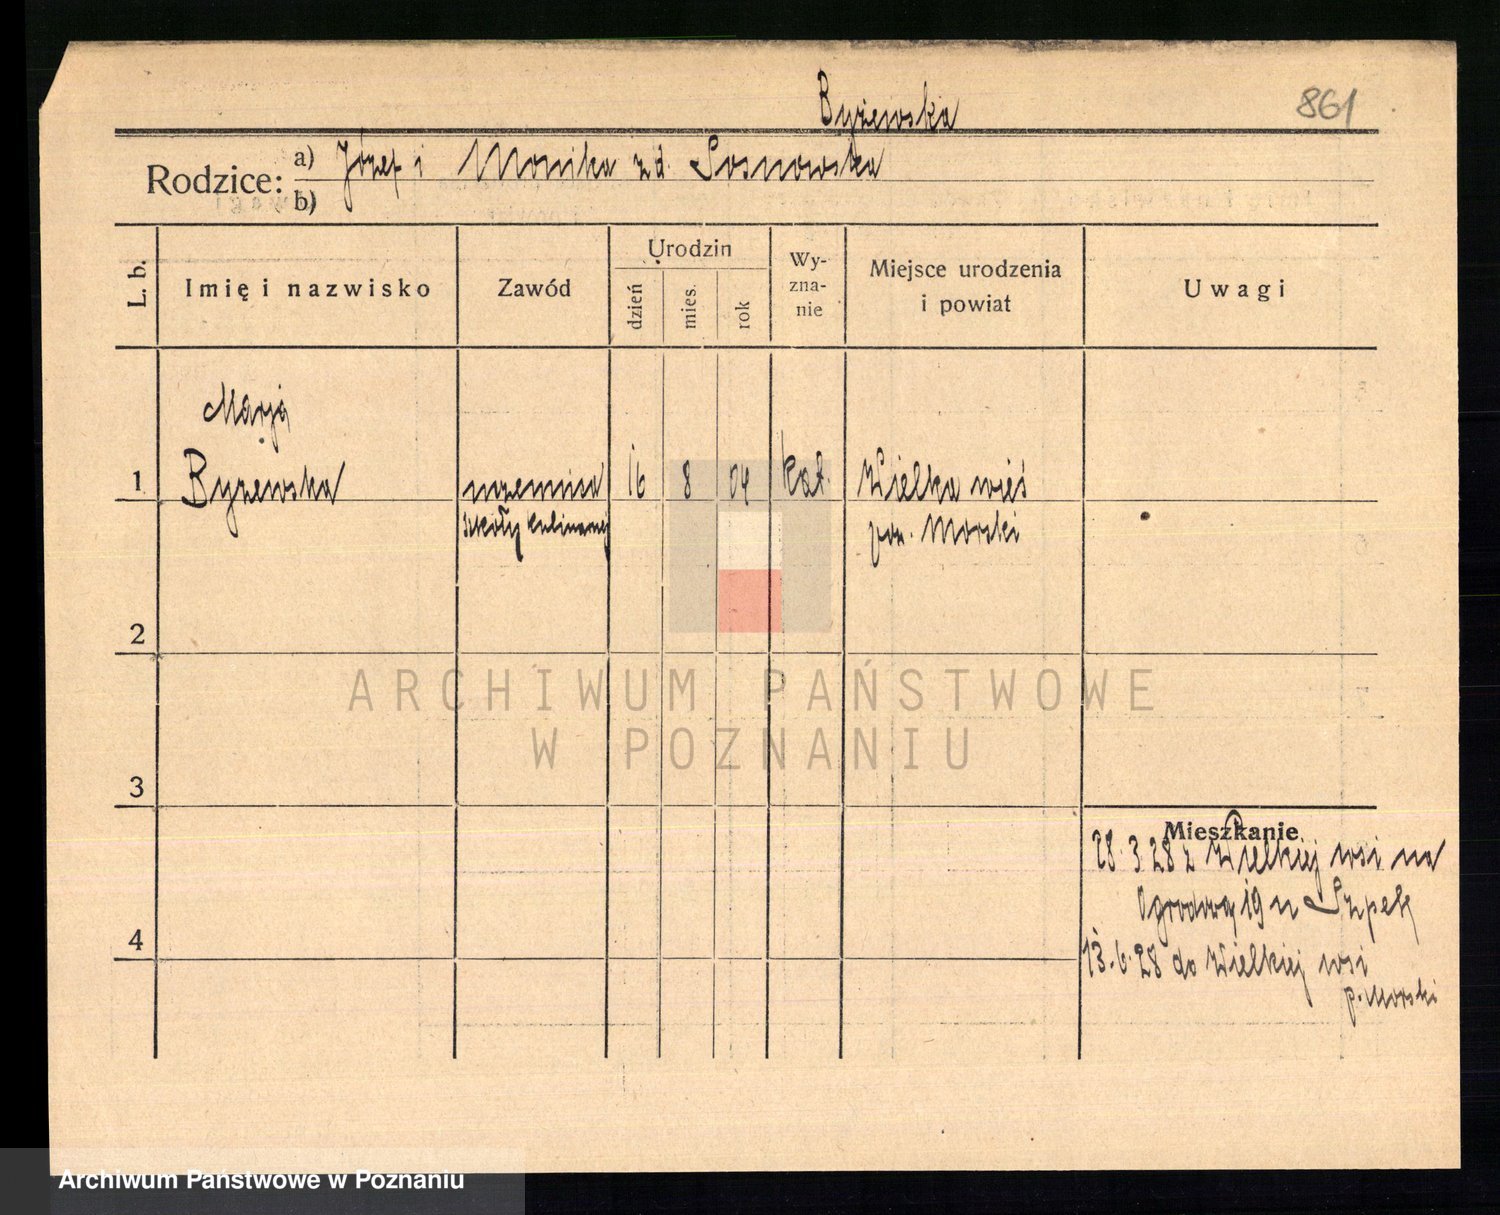 Byzewska
861
Rodzice: a) Józef i Monika z d. Sosnowska
b)
L. b.
Imię i nazwisko
Zawód
Urodzin
dzień
mies.
rok
Wy-
zna-
nie
Miejsce urodzenia
i powiat
Uwagi
Marja
1 Byzewska uczennica 16 8 04 kat. Wielka wieś
szkoły kulinarnej pow. Morski
2
3
4
Mieszkanie
28.3.28 z Wielkiej wsi na
Ogrodową 19 u
13.6.28 do Wielkiej wsi
p. Morski
ARCHIWUM PAŃSTWOWE
W POZNANIU
Archiwum Państwowe w Poznaniu